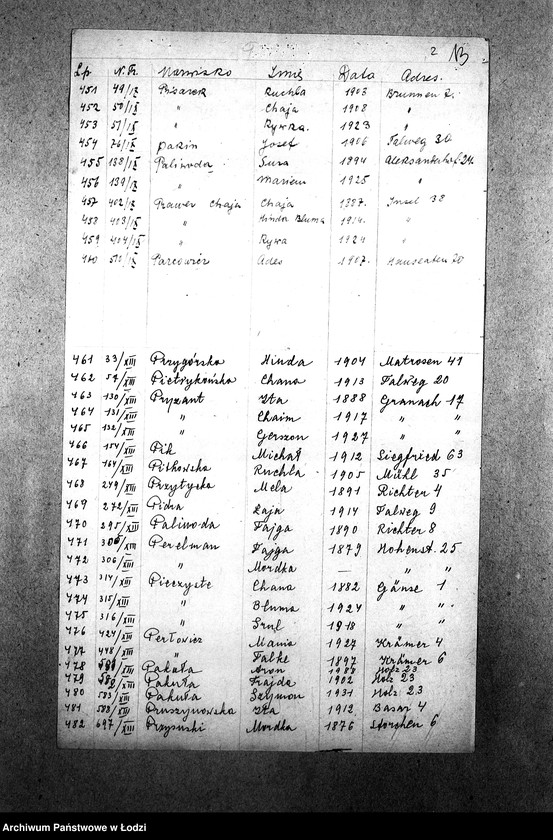 2 13
Lp. N.Tr. Nazwisko Imię Data Adres.
451 49/IX Pisarek Ruchla 1903 Brunnen 2.
452 50/IX " Chaja 1908 "
453 51/IX " Rywka. 1923 "
454 76/IX Parzin Josef 1906 Falweg 30
455 138/IX Paliwoda Sura 1894
456 139/IX " Mariem 1925 "
457 402/IX Prawer Chaja Chaja 1887. Insel 38
458 403/IX " Hinda Bluma 1914. "
459 404/IX " Rywa 1924 "
460 510/IX Parcowicz Ades 1907. Hanseaten 20
461 33/XIII Przygórska Hinda 1904 Matrosen 41
462 57/XIII Pietrykowska Chana 1913 Falweg 20
463 130/XIII Pryzant Ita 1888 Gnansch 17
464 131/XIII " Chaim 1917 " "
465 132/XIII " Gerszon 1927 " "
466 154/XIII Pik Michał 1912 Siegfried 63
467 164/XIII Pitkowska Ruchla 1905 Mühl 35
468 249/XIII Przytycka Mela 1891 Richter 4
469 272/XIII Pidra Łaja 1914 Falweg 9
470 295/XIII Paliwoda Fajga 1890 Richter 8
471 305/XIII Perelman Fajga 1879 Hohenst. 25
472 306/XIII " Mordka — " "
473 314/XIII Pieczyste Chana 1882 Gänse 1
474 315/XIII " Bluma 1924 " "
475 316/XIII " Srul 1918 " "
476 424/XIII Perłowicz Mania 1927 Krämer 4
477 448/XIII " Falke 1897 Krämer 6
478 Pakuła Aron Holz 23
479 Pakuła Frajda 1902 Holz 23
480 503/XIII Pakuła Szymon 1931 Holz 23
481 583/XIII Pruszynowska Ita 1912 Basar 4
482 697/XIII Przysuski Mordka 1876 Storchen 6
Archiwum Państwowe w Łodzi